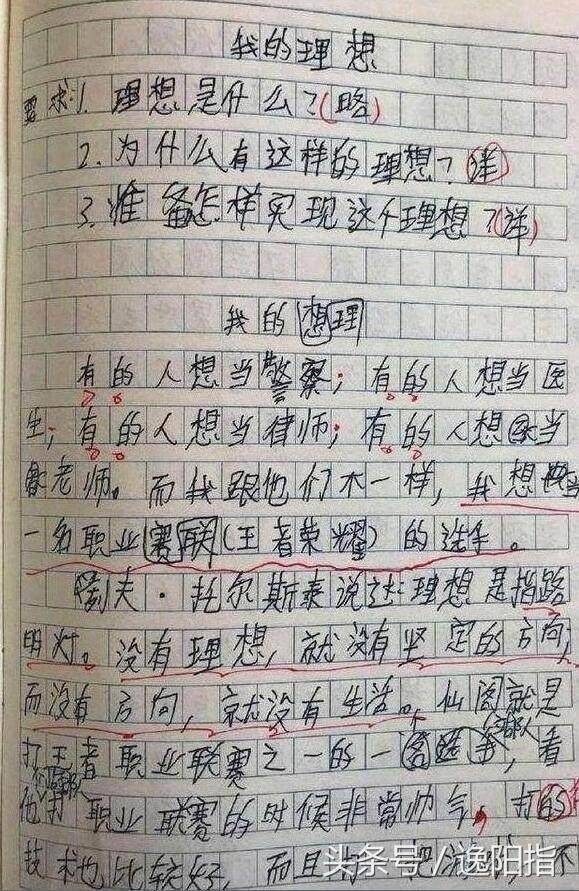 我的理想
要求:1.理想是什么?(略)
2.为什么有这样的理想?(详)
3.准备怎样实现这个理想?(详)
我的想理
有的人想当警察;有的人想当医
生;有的人想当律师;有的人想当
老师。而我跟他们不一样,我想当
一名职业赛联(王者荣耀)的选手。
列夫·托尔斯泰说过:理想是指路
明灯。没有理想,就没有坚定的方向,
而没有方向,就没有生活。仙阁就是
打王者职业联赛之一的一名选手,看
他打职业联赛的时候非常帅气,打的
技术也比较好,而且
头条号/逸阳指